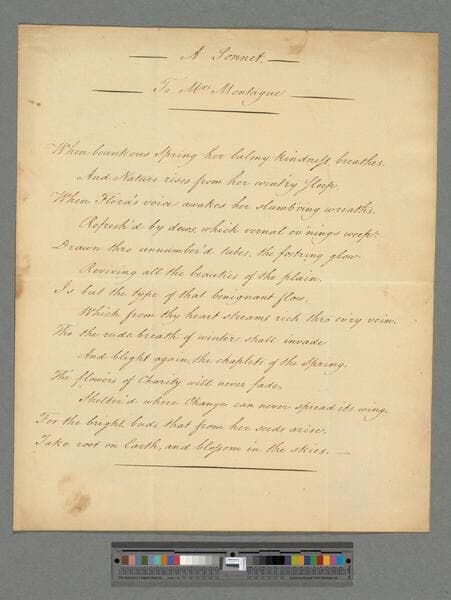 A Sonnet.
To Mrs Montague
When bounteous Spring her balmy kindness breathes
And Nature rises from her wint'ry Sleep,
When Flora's voice awakes her slumb'ring wreaths,
Refresh'd by dews, which vernal ev'nings weep:
Drawn thro unnumber'd tubes, the fost'ring glow
Reviving all the beauties of the plain,
Is but the type of that benignant flow,
Which from thy heart streams rich thro ev'ry vein.
Tho the rude breath of winter shall invade
And blight again, the chaplets of the Spring,
The flowers of Charity will never fade,
Shelter'd where Change can never spread its wing.
For the bright buds that from her seeds arise,
Take root on Earth, and blossom in the skies. —